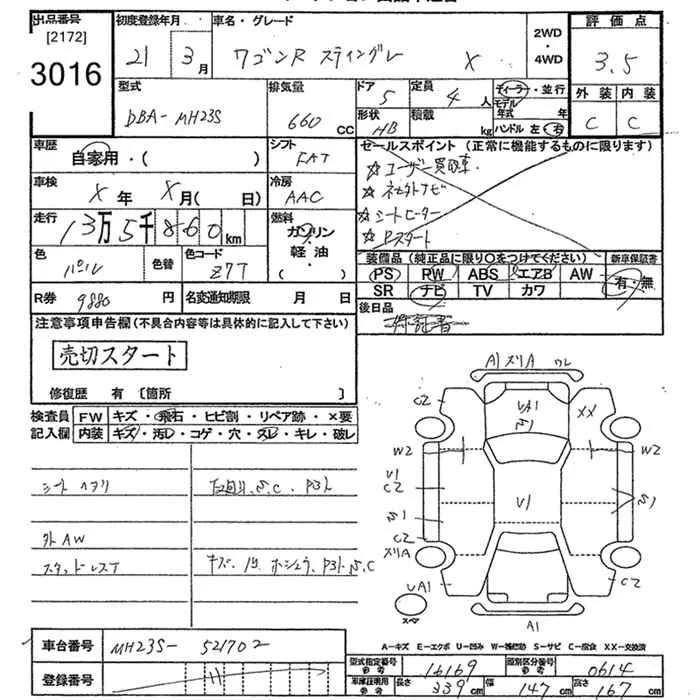 出品番号
[2172]
3016
初度登録年月
21 3月
車名・グレード
ワゴンR スティングレ X
2WD
・
4WD
評価点
3.5
外装 内装
C C
型式
DBA-MH23S
排気量
660 CC
ドア
5
形状
HB
定員
4 人
積載
kg
ディーラー・並行
モデル年式 年
ハンドル 左・右
車歴
自家用・( )
シフト
FAT
セールスポイント (正常に機能するものに限ります)
☆ユーザー買取車
☆社外ナビ
☆シートヒーター
☆Pスタート
車検
X年 X月(日)
冷房
AAC
走行
13万5千860km
燃料
ガソリン
軽油
・( )
色
パール
色替
色コード
Z7T
装備品 (純正品に限り○をつけてください)
新車保証書
PS RW ABS エアB AW
有・無
SR ナビ TV カワ
R券 9880円
名変通知期限 月 日
後日品
保証書
注意事項申告欄 (不具合内容等は具体的に記入して下さい)
売切スタート
修復歴 有 〔箇所 〕
検査員 FW キズ・飛石・ヒビ割・リペア跡・×要
記入欄 内装 キズ・汚レ・コゲ・穴・スレ・キレ・破レ
シートヘタリ
外AW
スタッドレスT
A1 ズリA ワレ
C2
UA1
S1
XX
W2
W2
U1
C2
U1
S1
S1
C2
ズリA
UA1
C2
スペア
A1
A-キズ E-エクボ U-凹み W-補修跡 S-サビ C-腐食 XX-交換済
車台番号
MH23S-521702
登録番号
型式指定番号 参考 16169
類別区分番号 参考 0614
車庫証明用 参考 長さ 339cm 幅 147cm 高さ 167cm